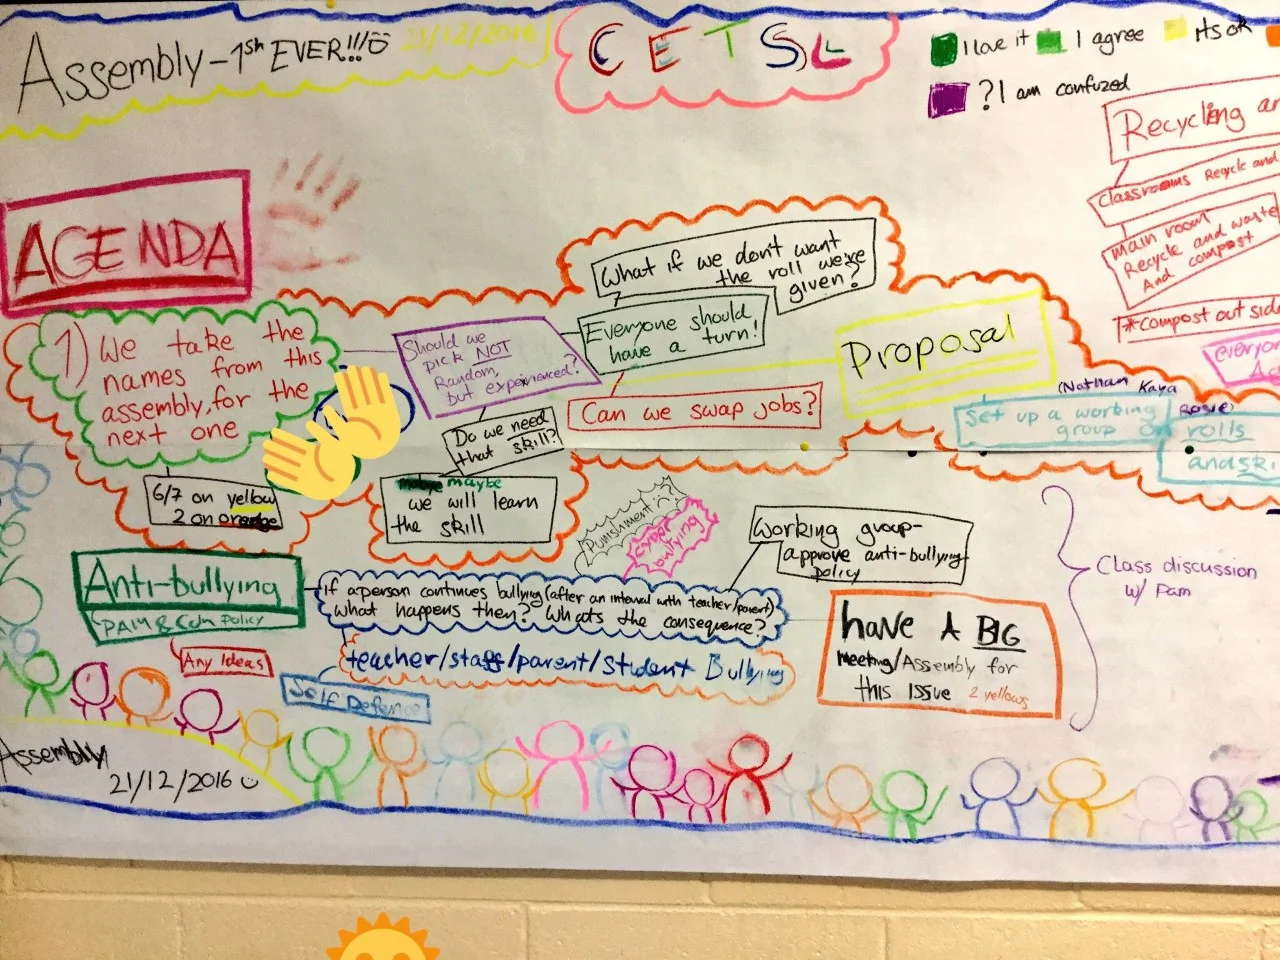 Assembly-1st EVER!!!
21/12/2016
CETSL
I love it
I agree
its ok
? I am confuzed
Recycling
Classrooms Recycle and
main room
Recycle and waste
And compost
*compost out side
everyon
AGENDA
1) We take the
names from this
assembly, for the
next one
6/7 on yellow
2 on orange
Should we
pick NOT
Random,
but experienced?
Do we need
that skill?
maybe
we will learn
the skill
What if we don't want
the roll we're
given?
Everyone should
have a turn!
Can we swap jobs?
Proposal
(Nathan Kaya
Rosie)
Set up a working
group on rolls
and
Punishment
cyber
bullying
Working group-
approve anti-bullying
policy
Anti-bullying
PAM & Policy
Any Ideas
if a person continues bullying (after an interval with teacher/parent)
what happens then? Whats the consequence?
teacher/staff/parent/student Bullying
Self Defence
have A BIG
meeting/Assembly for
this issue 2 yellows
Class discussion
w/ Pam
Assembly
21/12/2016